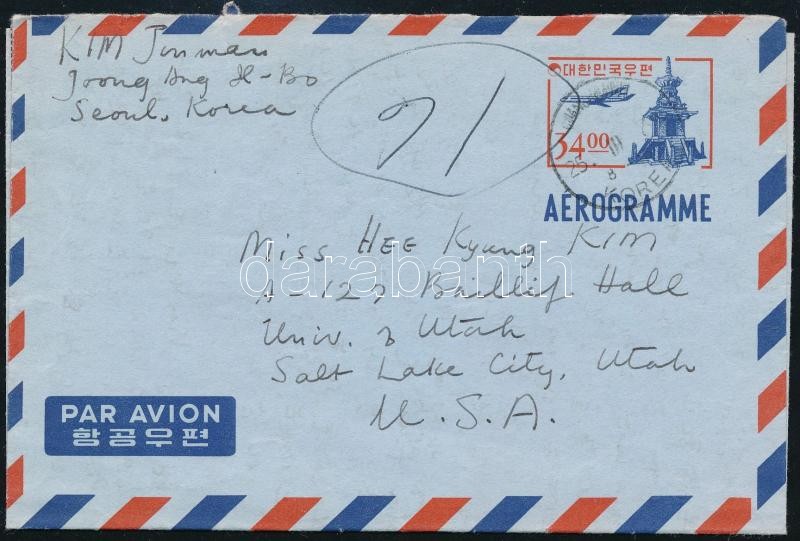 KIM Jinman
Joong Ang Il-Bo
Seoul, Korea
71
대한민국우편
34.00
25. III
KOREA
AEROGRAMME
Miss HEE Kyung KIM
A-127 Bailliff Hall
Univ. of Utah
Salt Lake City, Utah
U.S.A.
darabanth
PAR AVION
항공우편